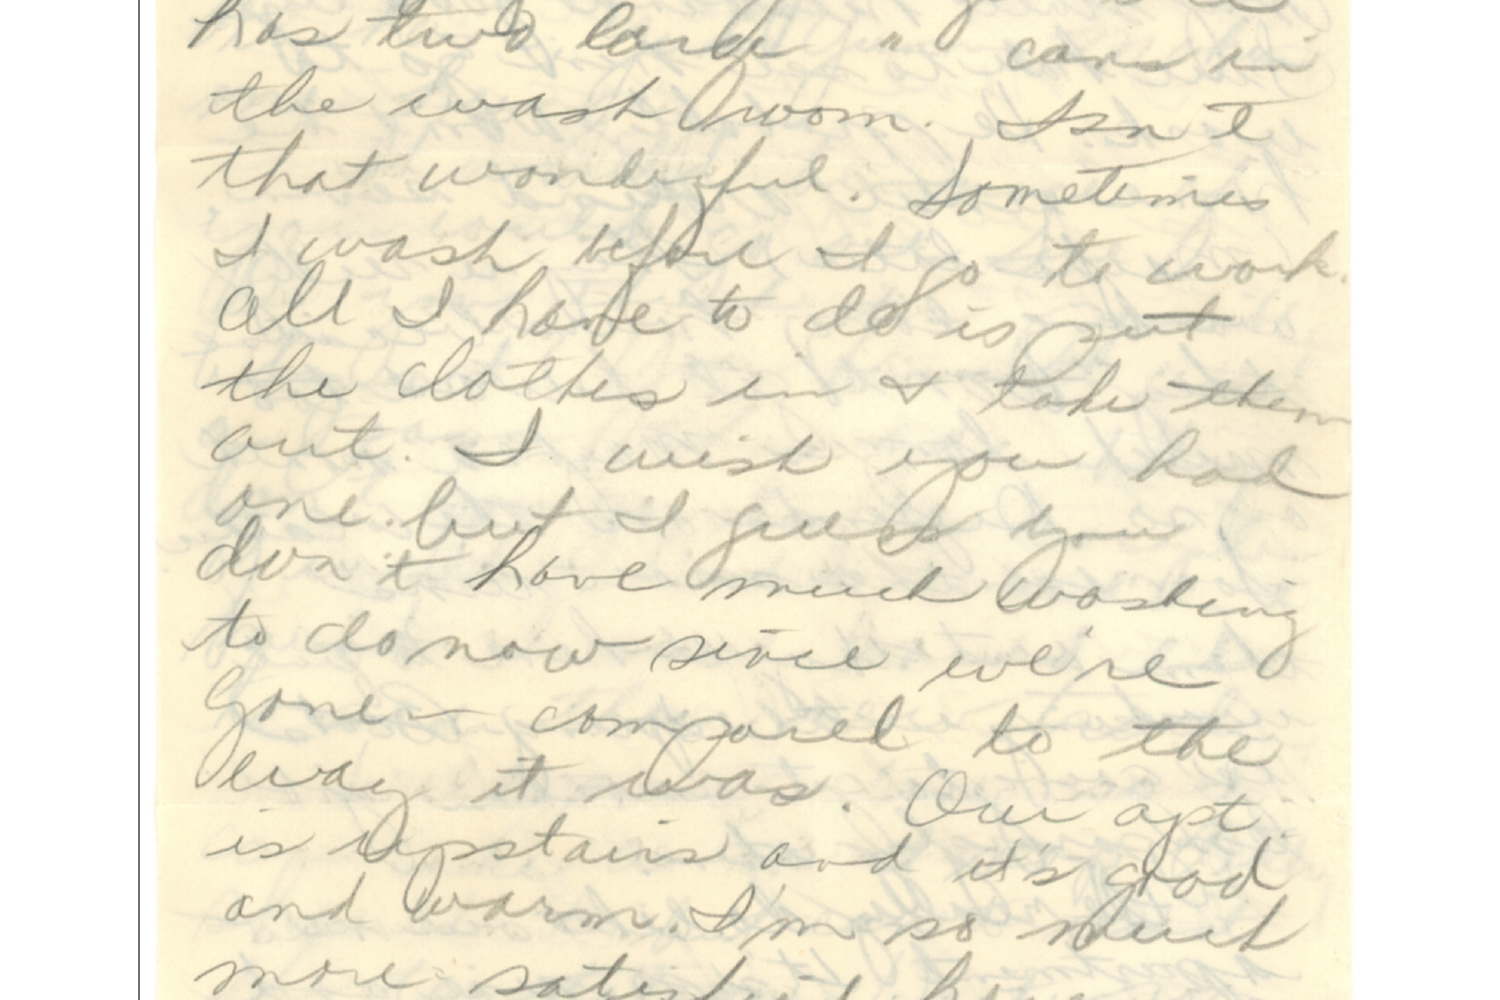 has two large " cans in
the wash room. Isn't
that wonderful. Sometimes
I wash before I go to work.
All I have to do is put
the clothes in & take them
out. I wish you had
one. but I guess you
don't have much washing
to do now since we're
gone — compared to the
way it was. Our apt.
is upstairs and it's good
and warm. I'm so much
more satisfied here